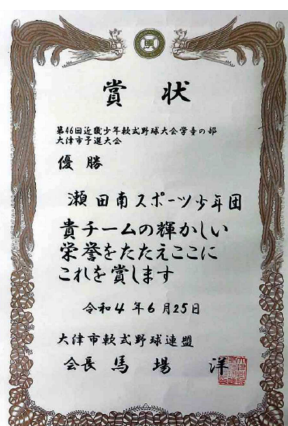 賞状
第46回近畿少年軟式野球大会学童の部
大津市予選大会
優勝
瀬田南スポーツ少年団
貴チームの輝かしい
栄誉をたたえここに
これを賞します
令和4年6月25日
大津市軟式野球連盟
会長 馬場 洋